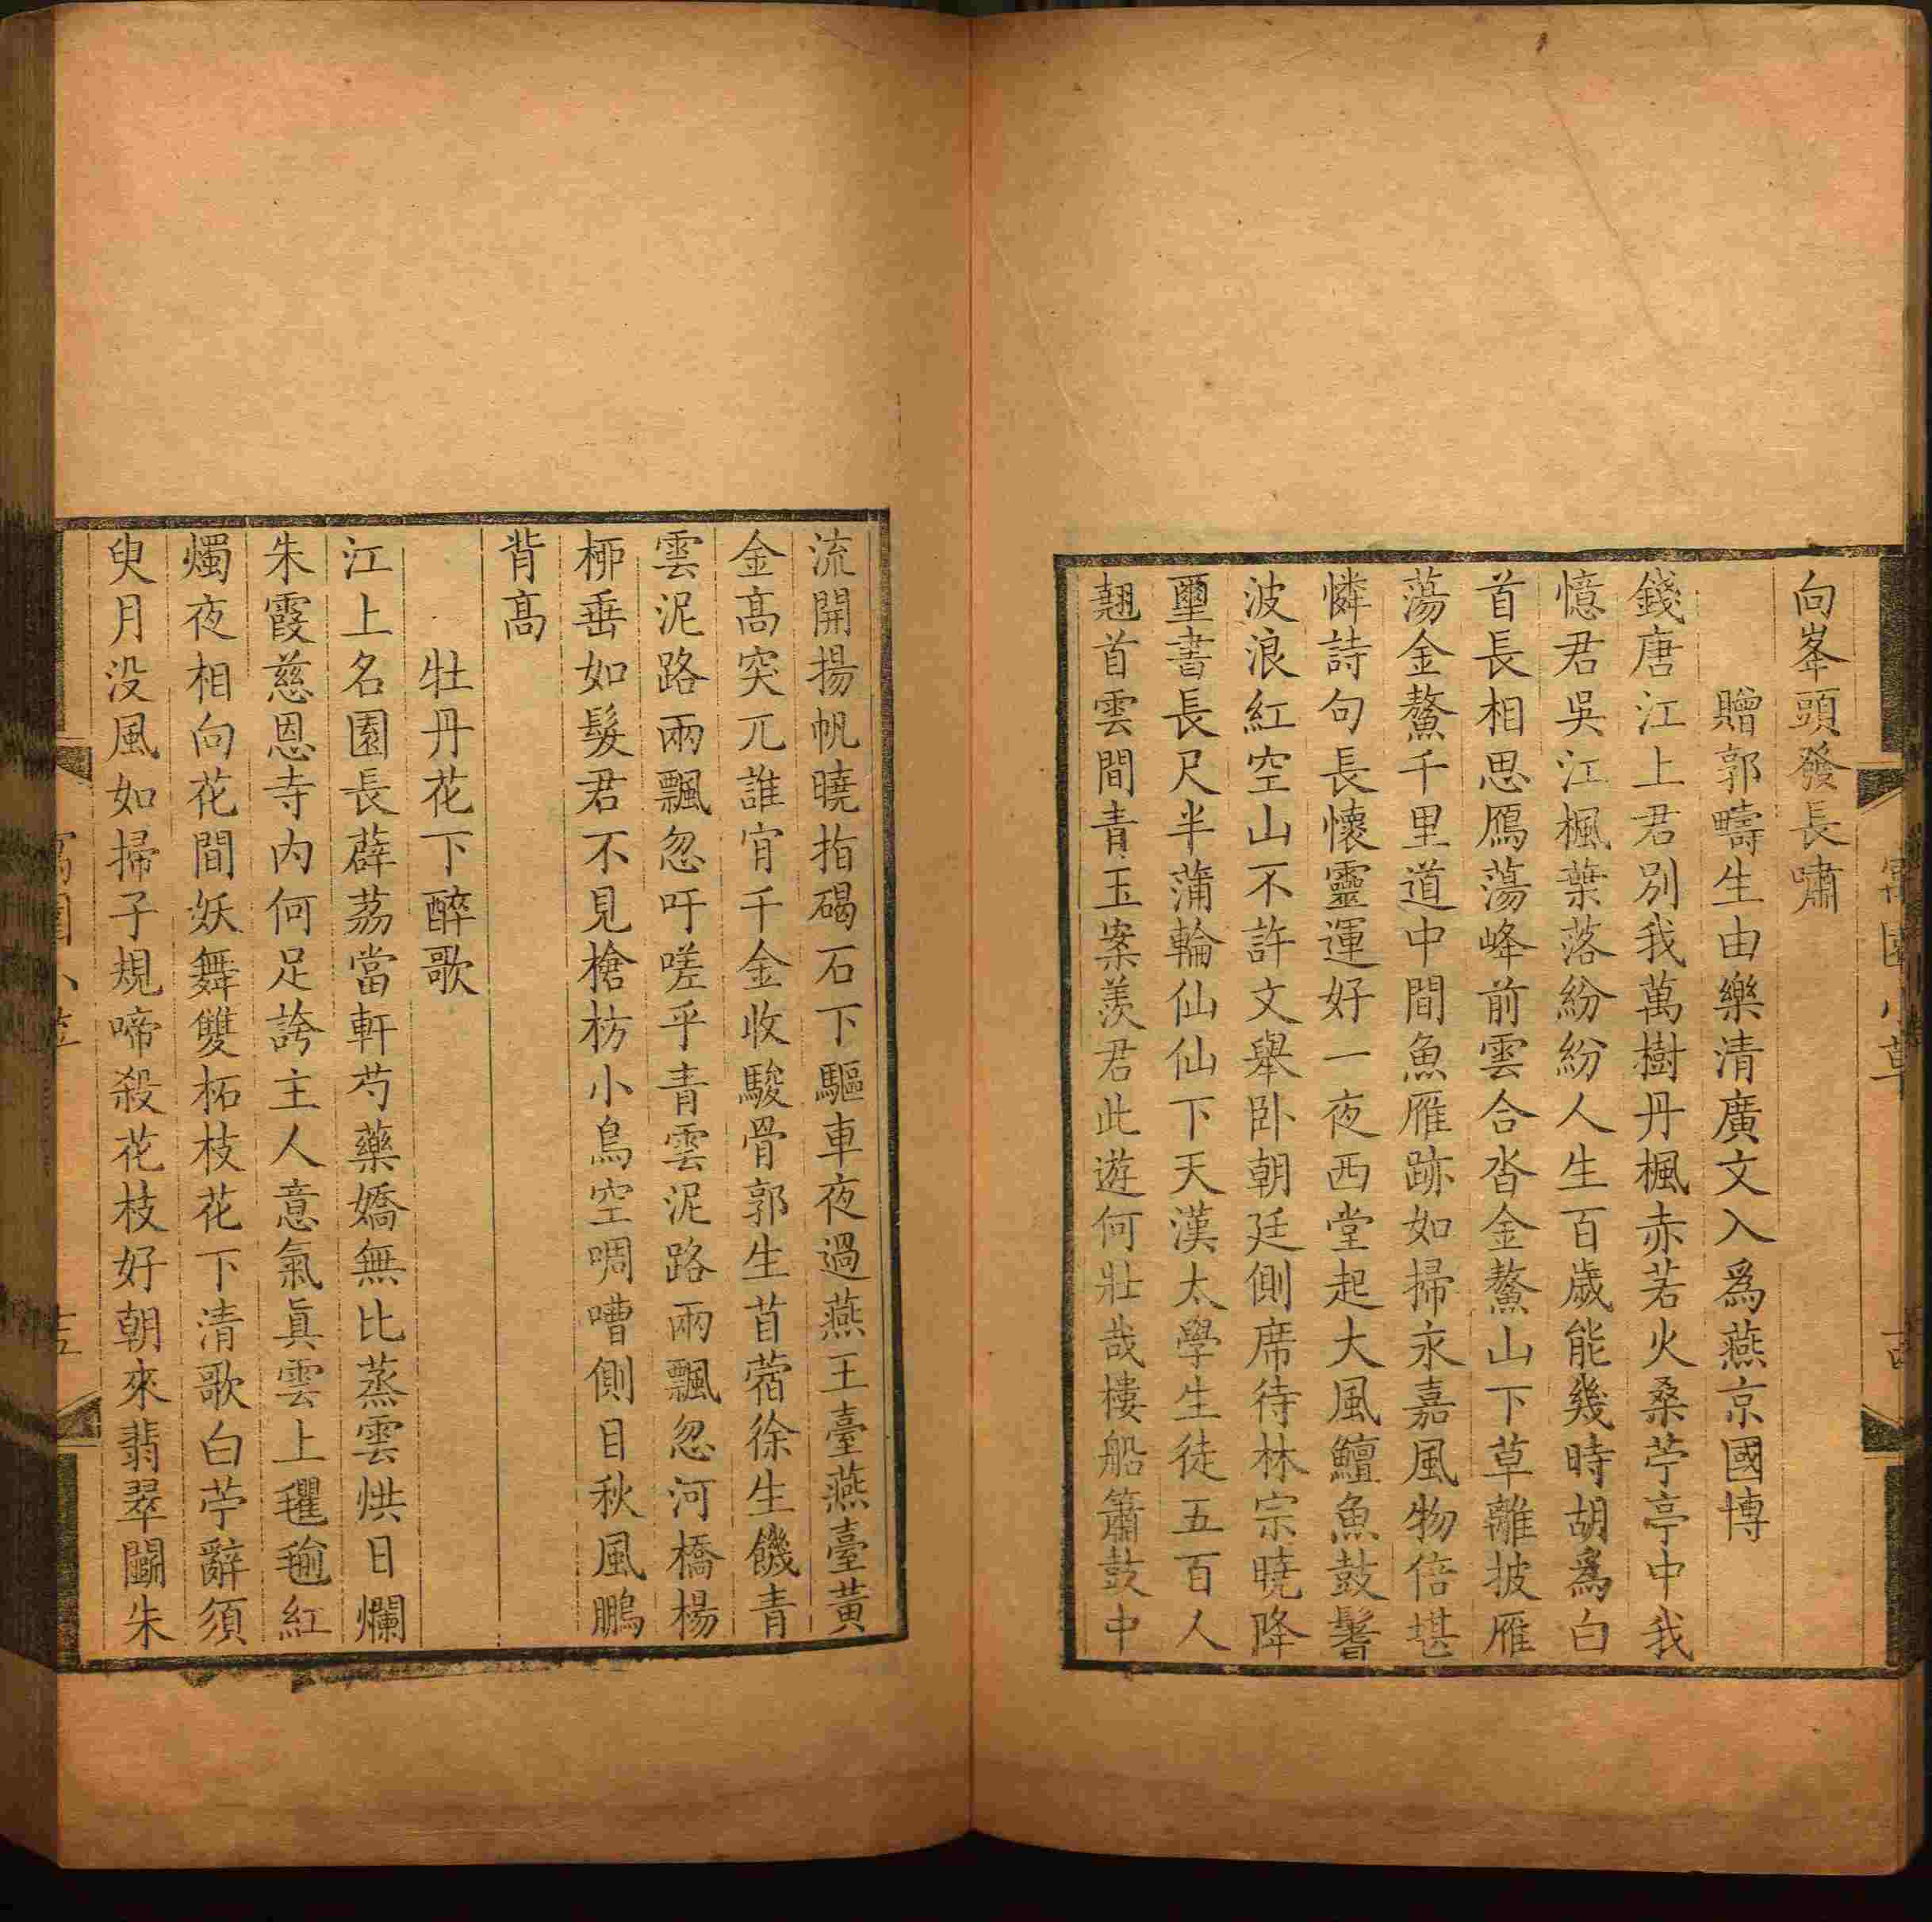 向峯頭發長嘯
贈郭疇生由樂清廣文入爲燕京國博
錢唐江上君別我萬樹丹楓赤若火桑苧亭中我
憶君吳江楓葉落紛紛人生百歲能幾時胡爲白
首長相思鴈蕩峰前雲合沓金鰲山下草離披雁
蕩金鰲千里道中間魚雁跡如掃永嘉風物倍堪
憐詩句長懷靈運好一夜西堂起大風鱣魚鼓鬐
波浪紅空山不許文舉卧朝廷側席待林宗曉降
璽書長尺半蒲輪仙仙下天漢太學生徒五百人
翹首雲間青玉案羨君此遊何壯哉樓船簫鼓中
流開揚帆曉指碣石下驅車夜過燕王臺燕臺黃
金高突兀誰肯千金收駿骨郭生苜蓿徐生饑青
雲泥路兩飄忽吁嗟乎青雲泥路兩飄忽河橋楊
栁垂如髮君不見槍枋小鳥空啁嘈側目秋風鵬
背高
牡丹花下醉歌
江上名園長薜荔當軒芍藥嬌無比蒸雲烘日爛
朱霞慈恩寺内何足誇主人意氣眞雲上氍毹紅
燭夜相向花間妖舞雙柘枝花下清歌白苧辭須
臾月没風如掃子規啼殺花枝好朝來翡翠鬬朱